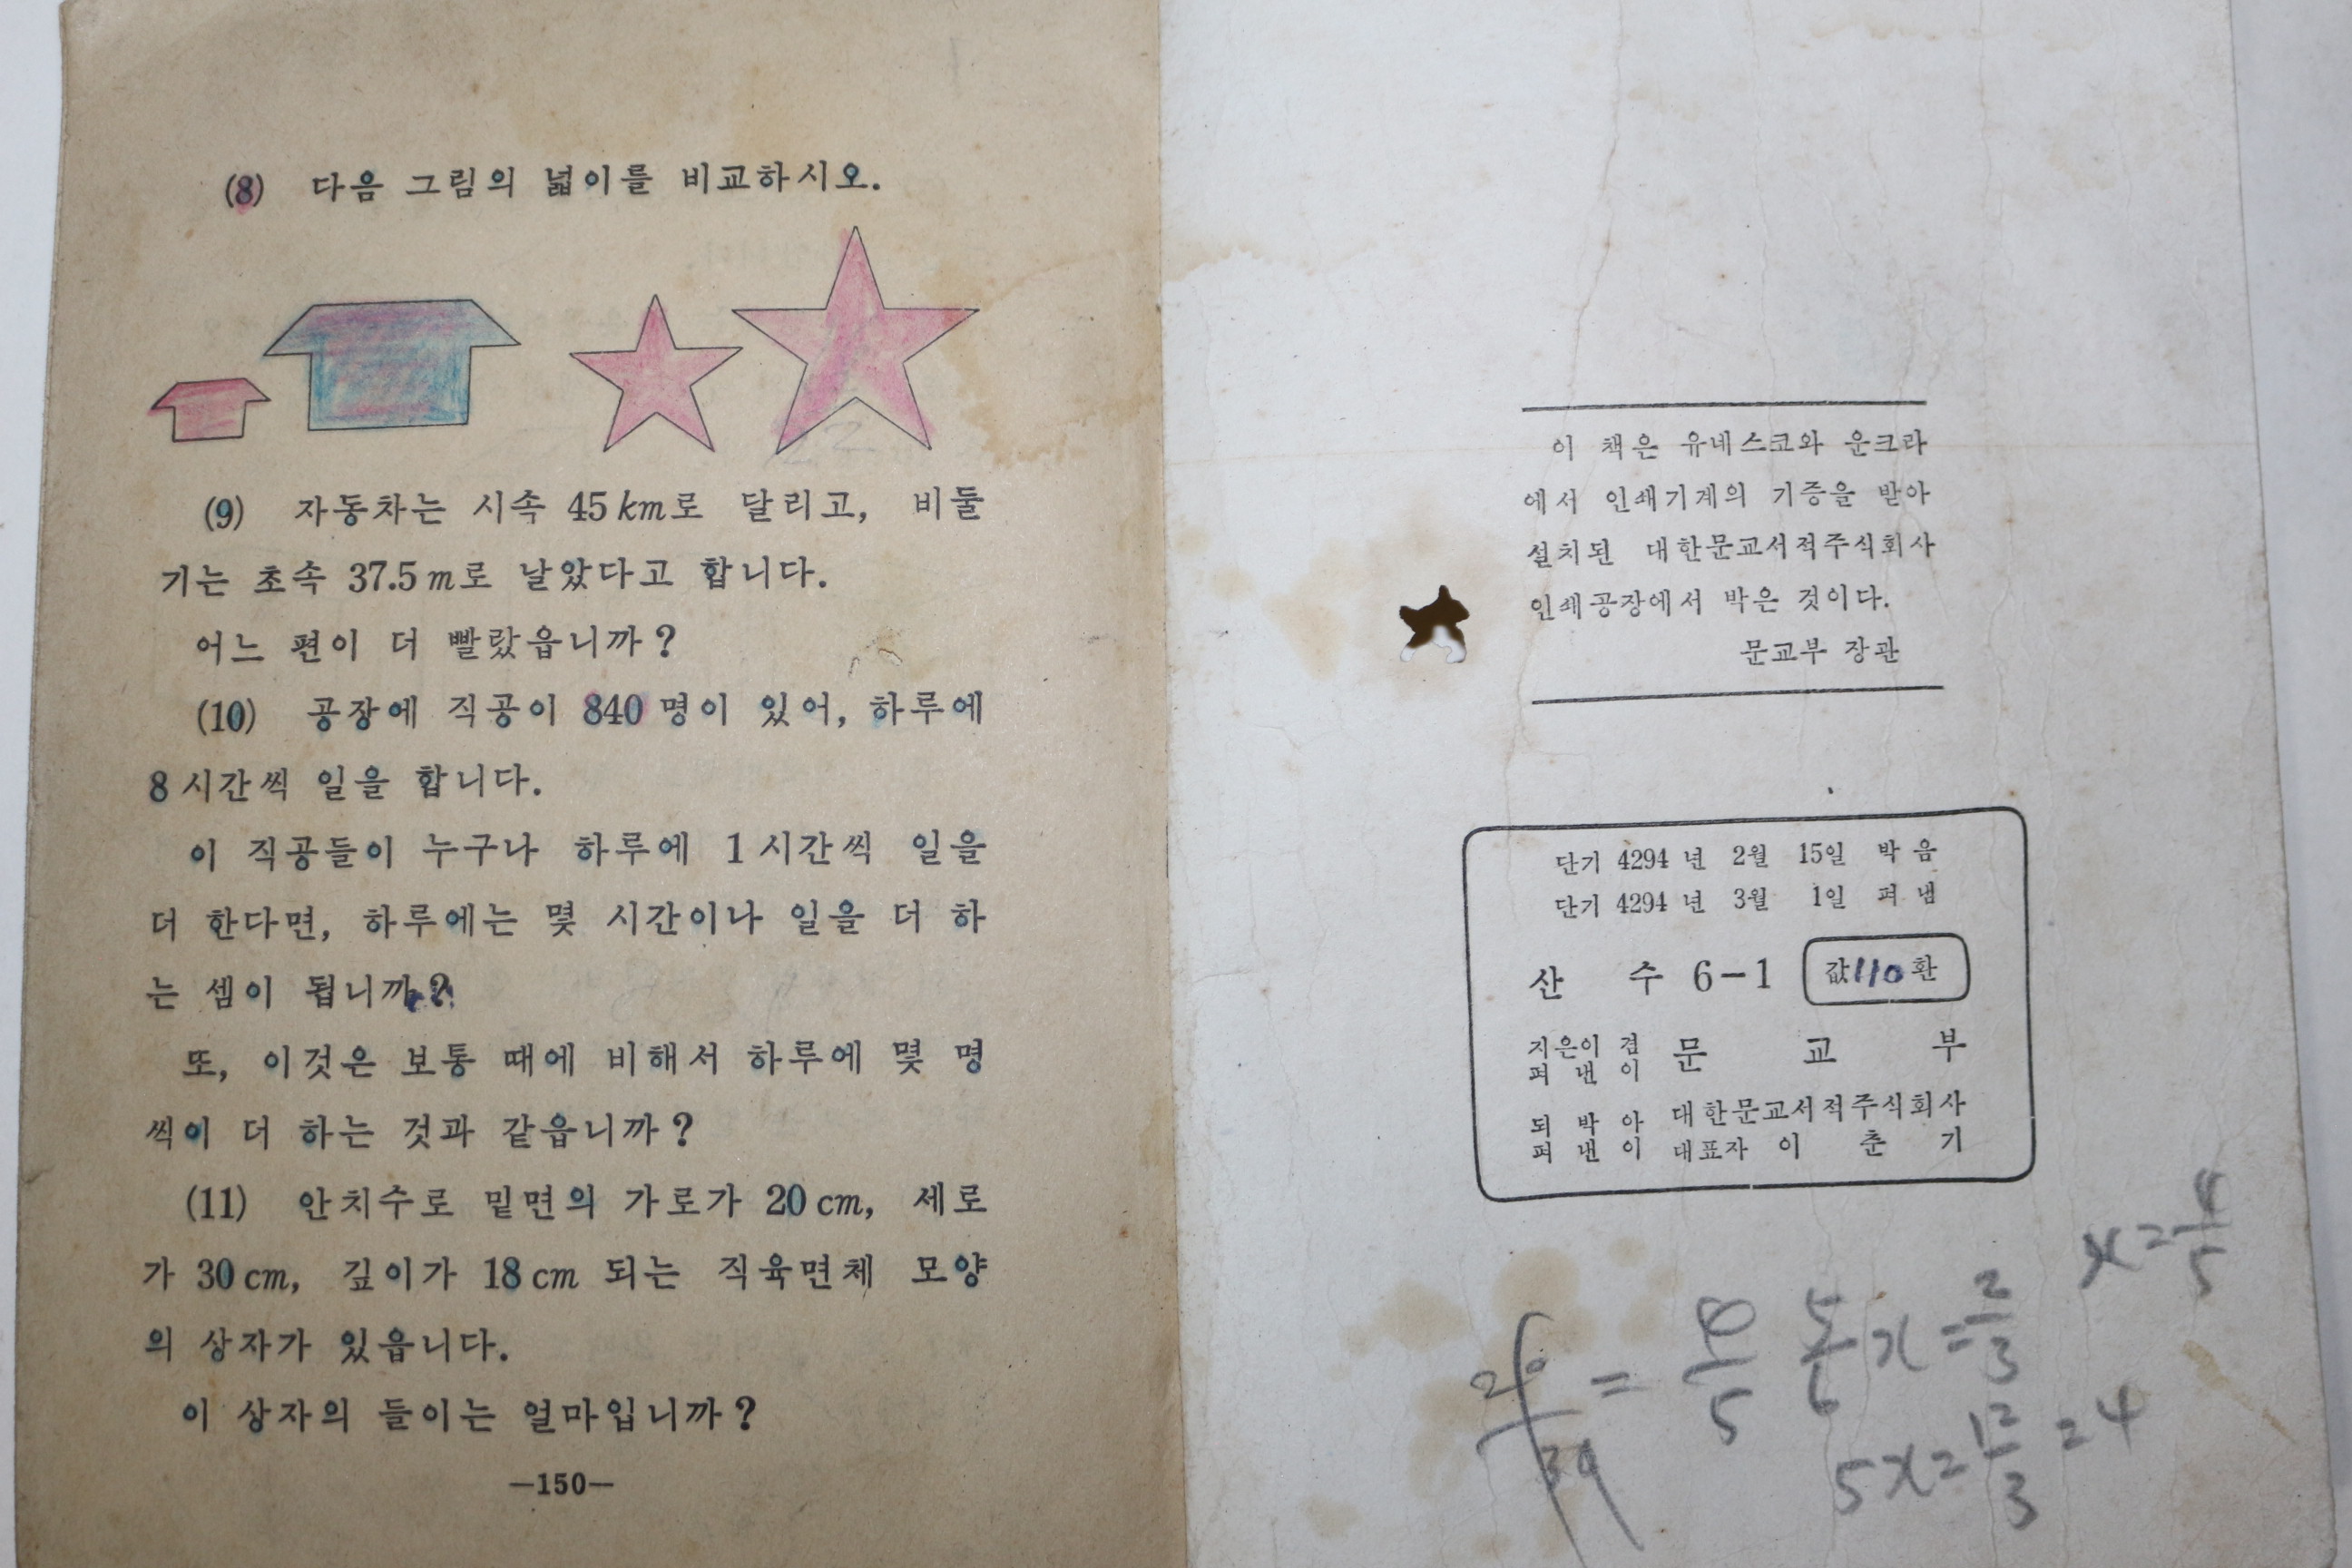 (8) 다음 그림의 넓이를 비교하시오.
(9) 자동차는 시속 45 km로 달리고, 비둘
기는 초속 37.5 m로 날았다고 합니다.
어느 편이 더 빨랐읍니까?
(10) 공장에 직공이 840 명이 있어, 하루에
8 시간씩 일을 합니다.
이 직공들이 누구나 하루에 1 시간씩 일을
더 한다면, 하루에는 몇 시간이나 일을 더 하
는 셈이 됩니까?
또, 이것은 보통 때에 비해서 하루에 몇 명
씩이 더 하는 것과 같읍니까?
(11) 안치수로 밑면의 가로가 20 cm, 세로
가 30 cm, 깊이가 18 cm 되는 직육면체 모양
의 상자가 있읍니다.
이 상자의 들이는 얼마입니까?
—150—
이 책은 유네스코와 운크라
에서 인쇄기계의 기증을 받아
설치된 대한문교서적주식회사
인쇄공장에서 박은 것이다.
문교부 장관
단기 4294 년 2월 15일 박음
단기 4294 년 3월 1일 펴냄
산 수 6-1 값110환
지은이 겸
펴 낸 이 문 교 부
되 박 아 대한문교서적주식회사
펴 낸 이 대표자 이 춘 기
x=4/5
= 4/5 5/6 x = 2/3
5x = 12/3 = 4